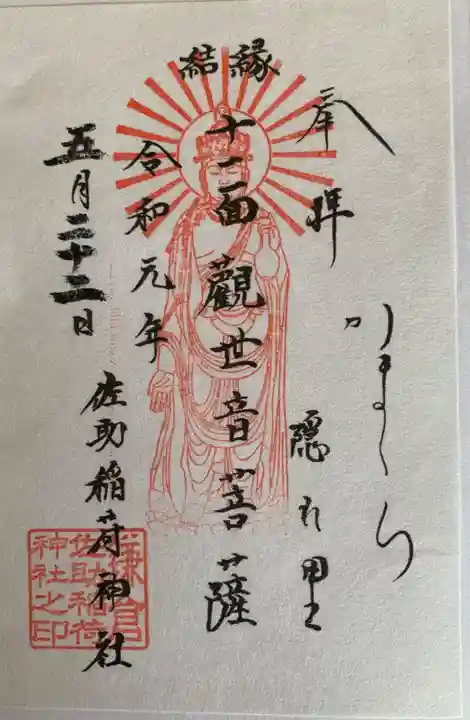 奉拝
かまくら
隠れ里
縁結
十一面觀世音菩薩
令和元年
五月二十二日
佐助稲荷神社
鎌倉
佐助稲荷
神社之印